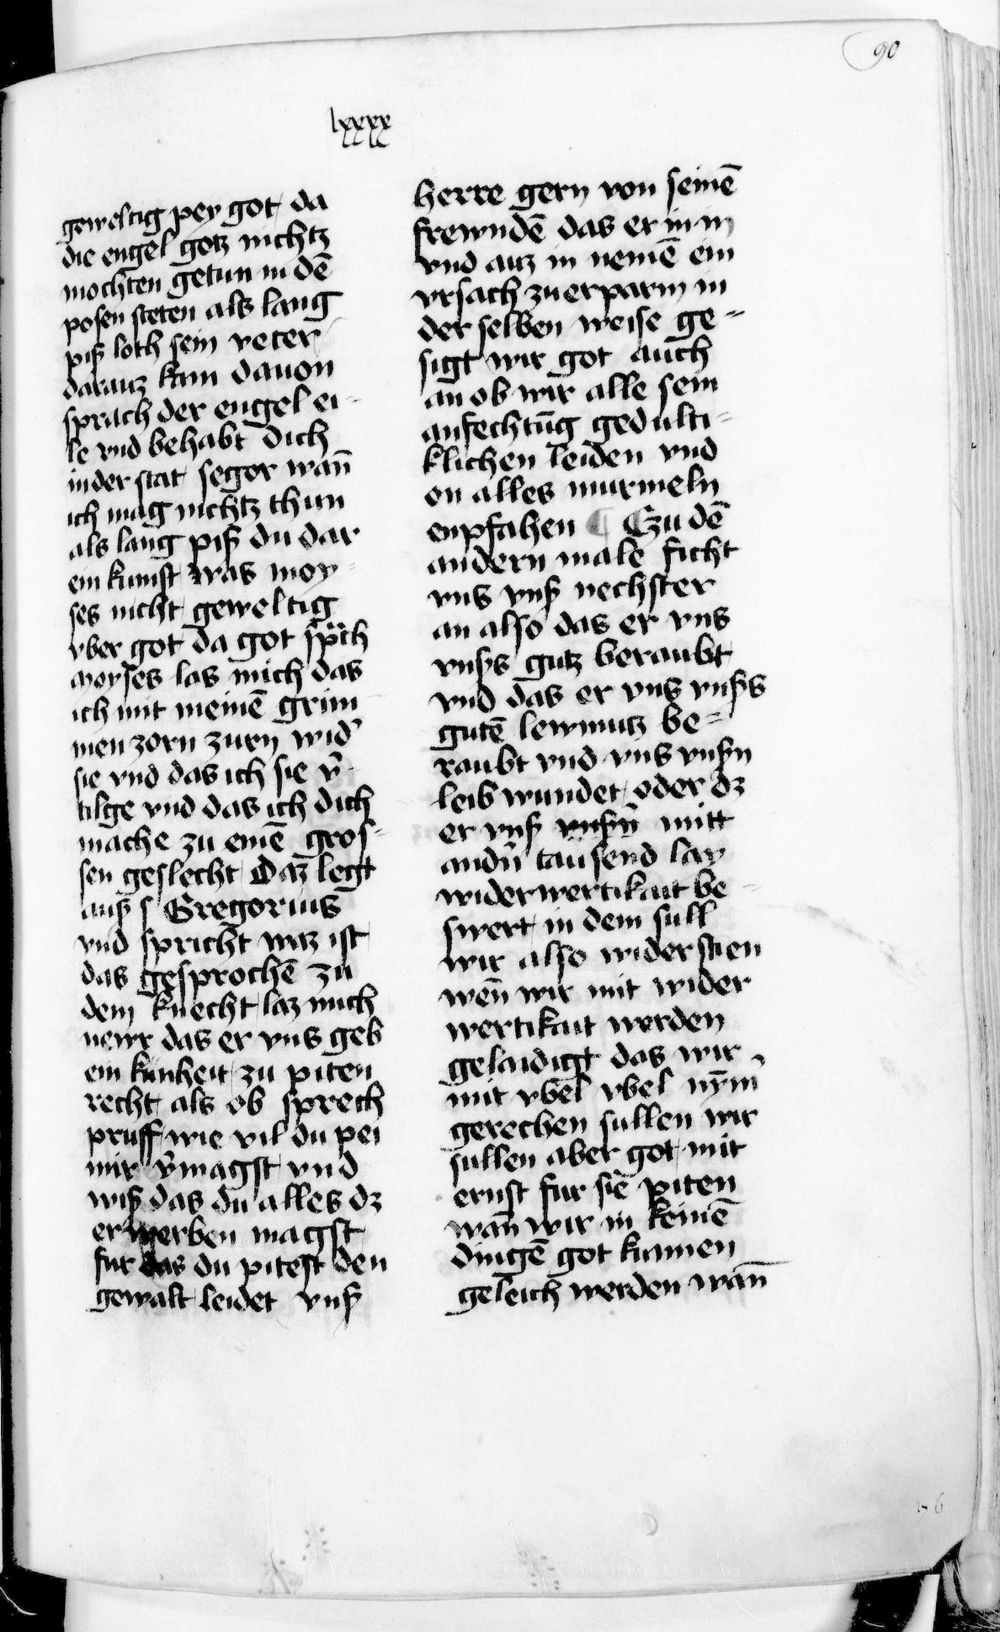 90
lxxxx
geweltig pey got da
die engel gotz nichtz
mochten getun in dē
posen steten als lang
piß loth sein veter
darauz kam dauon
sprach der engel ei-
le vnd behabt dich
in der stat segor wañ
ich mag nichtz thun
als lang piß du dar
ein kumst was moy-
ses nicht geweltig
vber got da got sp̃ch
moyses las mich das
ich mit meinē grim
men zorn zurn wid᷑
sie vnd das ich sie v᷑-
tilge vnd das ich dich
mache zu einē gros-
sen geslecht Daz legt
auß s Gregorius
vnd spricht waz ist
das gesprochē zu
dem knecht laz mich
newr das er vns geb
ein kunheit zu piten
recht als ob sprech
pruff wie vil du pei
mir v᷑magst vnd
wiß das du alles dz
erwerben magst
fur das du pitest den
gewalt leidet vnß
herre gern von seinē
frewndē das er in in
vnd auz in nemē ein
vrsach zu erparm in
der selben weise ge-
sigt wir got auch
an ob wir alle sein
anfechtūg gedulti-
klichen leiden vnd
on alles murmeln
enpfahen ¶ Czu dē
andern male ficht
vns vnß nechster
an also das er vns
vnßs gutz beraubt
vnd das er vns vnßs
gutē lewmutz be-
raubt vnd vns vnßn
leib wundet oder dz
er vnß vnßn̄ mitt
andn᷑ tausend lay
widerwertikait be-
swert in dem sull
wir also widersteen
wen̄ wir mit wider
wertikait werden
gelaidigt das wir
mit vbel vbel nym̄
gerechen sullen wir
sullen aber got mit
ernst fur sie piten
wan̄ wir in keinē
dingē got kumen
geleich werden wan̄